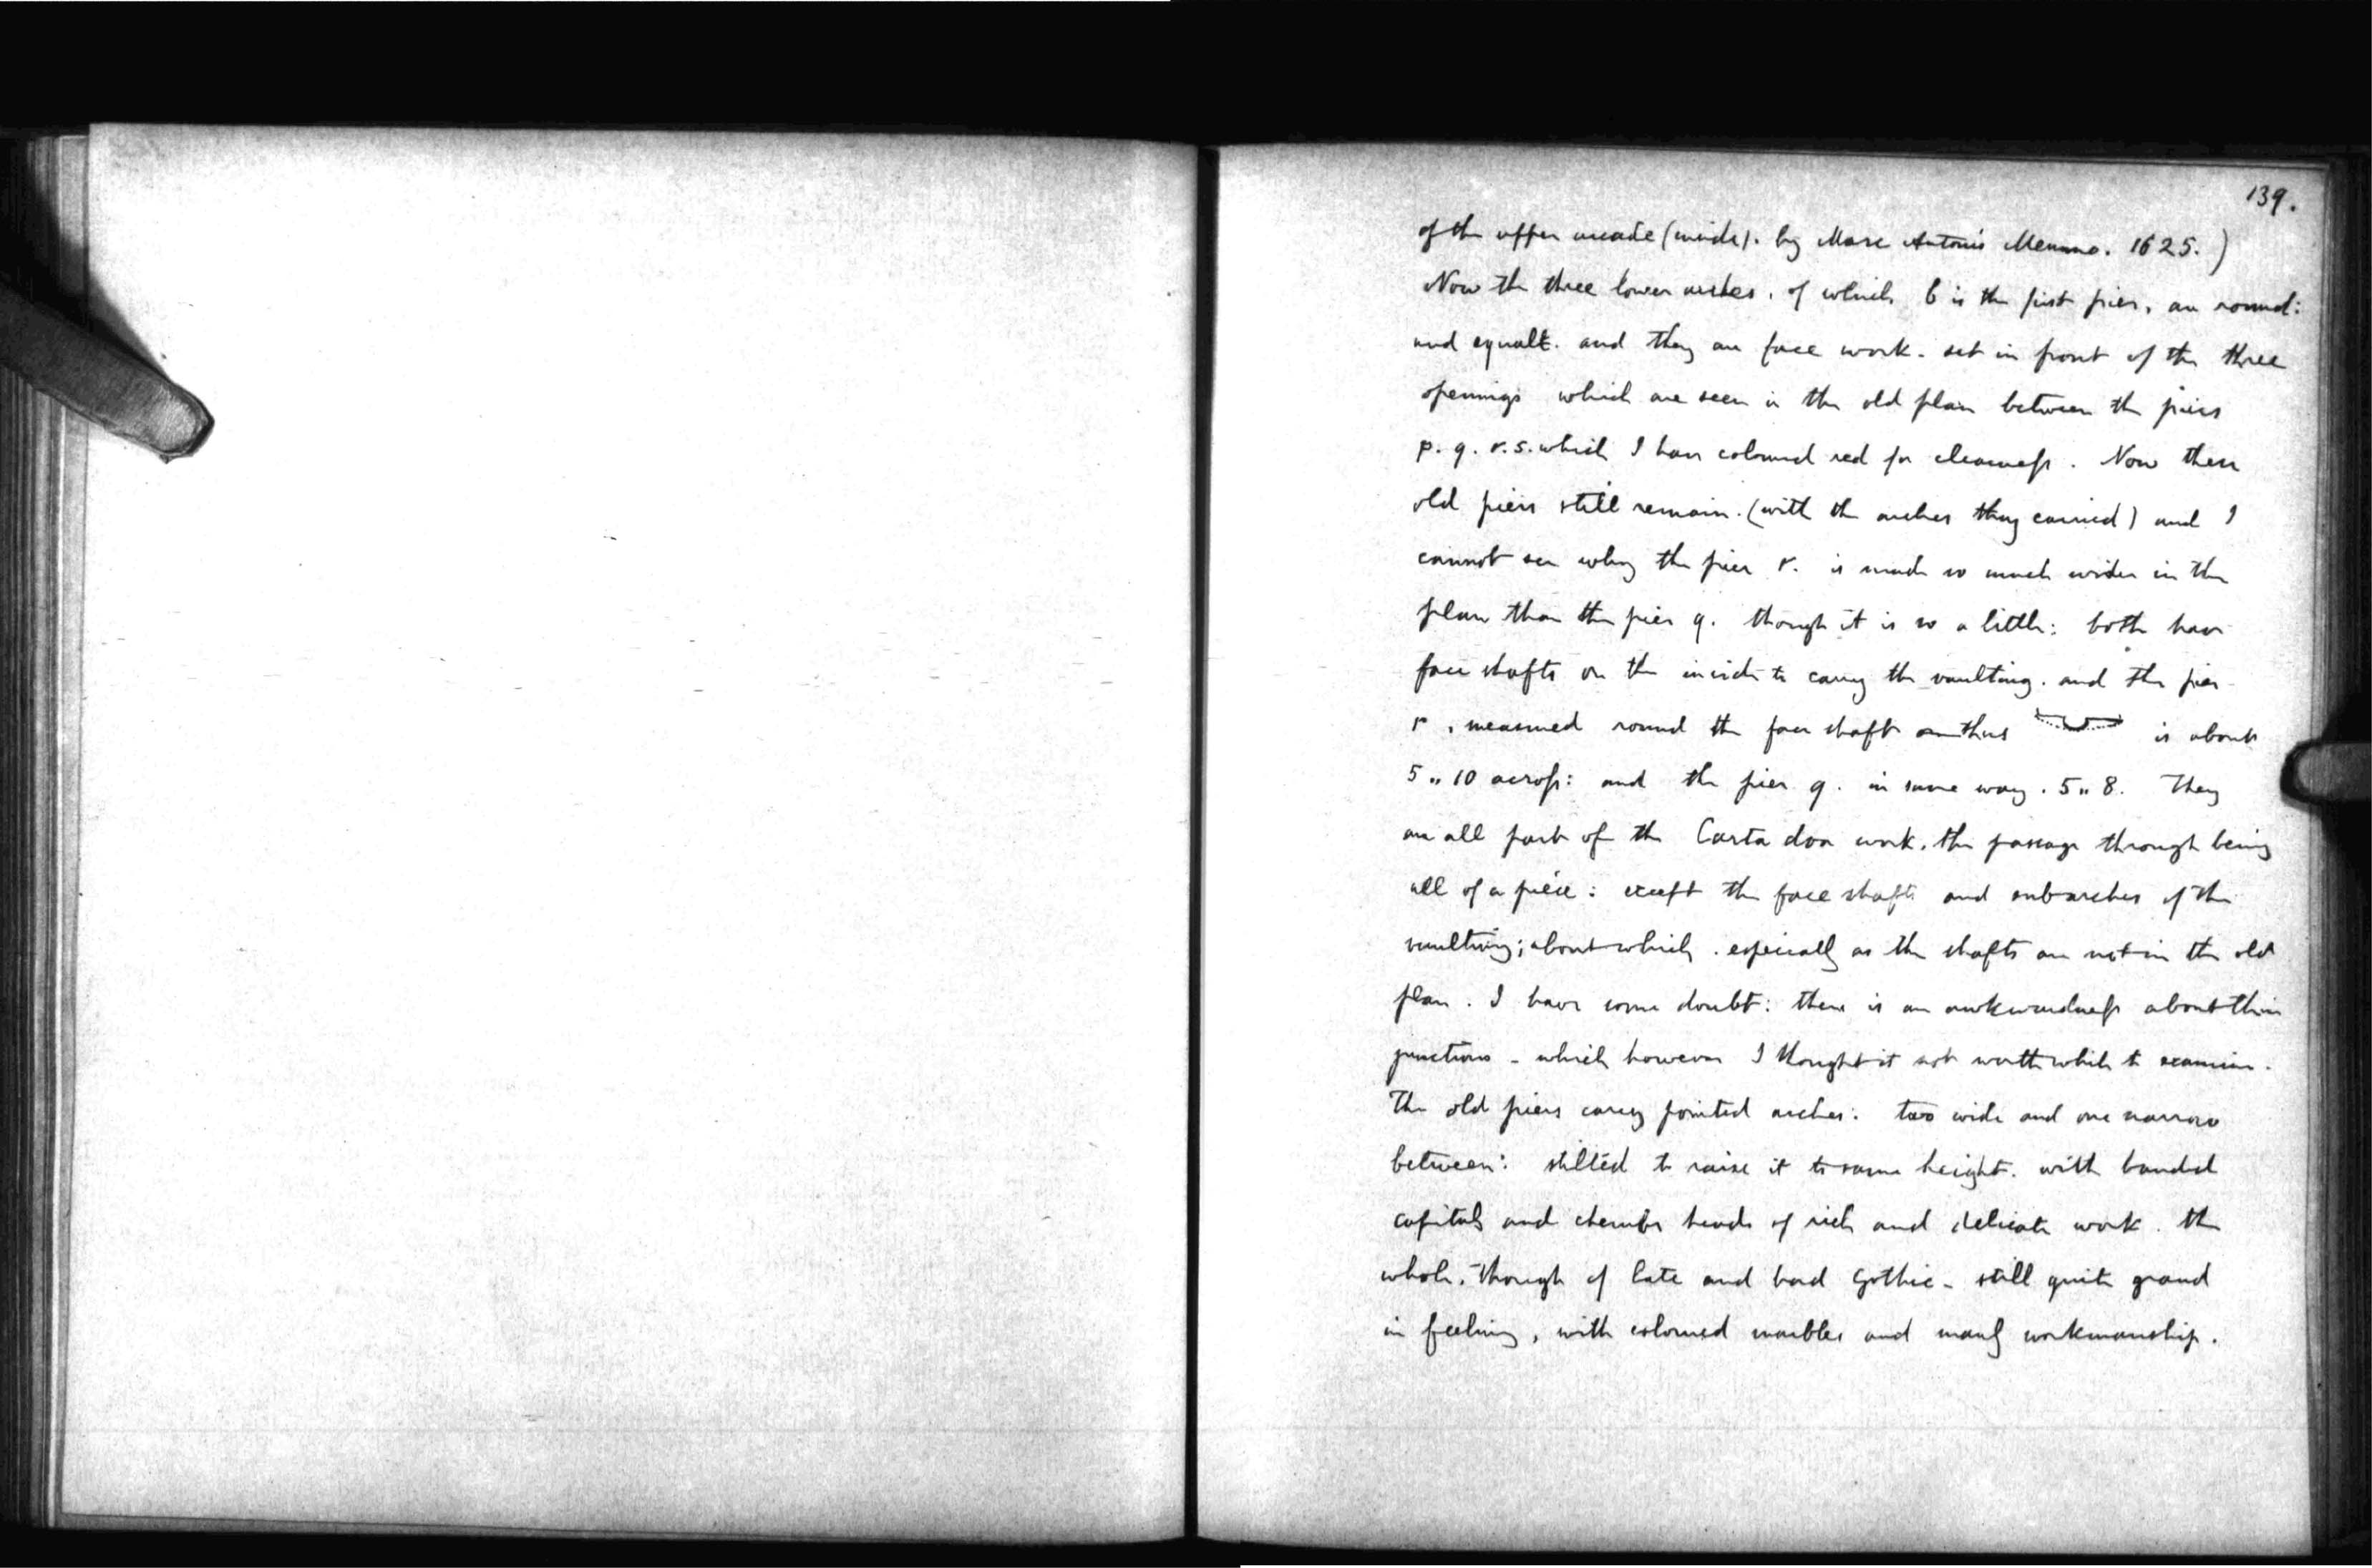 139.
of the upper arcade (inside). by Marc Antonio Memmo. 1625.)
Now the three lower arches, of which b is the first pier, are round:
and equal. and they are face work. set in front of the three
openings which are seen in the old plan between the piers
p. q. r. s. which I have coloured red for clearness. Now these
old piers still remain. (with the arches they carried) and I
cannot see why the pier r. is made so much wider in the
plan than the pier q. though it is so a little: both have
face shafts on the inside to carry the vaulting. and the pier
r, measured round the face shaft thus is about
5 " 10 across: and the pier q. in same way. 5 " 8. They
are all part of the Carta door work. the passage through being
all of a piece: except the face shafts and subarches of the
vaulting; about which. especially as the shafts are not in the old
plan. I have some doubt: there is an awkwardness about their
junctions - which however I thought it not worth while to examine.
The old piers carry pointed arches: two wide and one narrow
between: stilted to raise it to same height. with banded
capitals and cherubs heads of rich and delicate work. the
whole, though of late and bad Gothic - still quite grand
in feeling, with coloured marbles and manly workmanship.